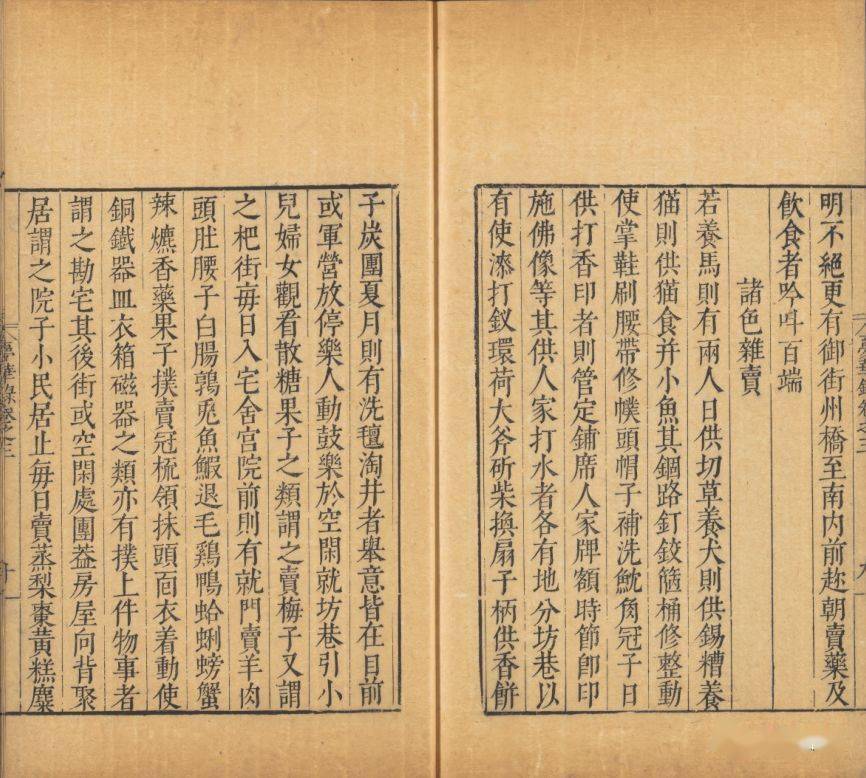 明不絕更有御街州橋至南内前趂朝賣藥及
飲食者吟呌百端
諸色雜賣
若養馬則有兩人日供切草養犬則供餳糟養
猫則供猫食并小魚其錮路釘鉸箍桶修整動
使掌鞋刷腰帶修幞頭帽子補洗魫角冠子日
供打香印者則管定鋪席人家牌額時節卽印
施佛像等其供人家打水者各有地分坊巷以
有使漆打釵環荷大斧斫柴換扇子柄供香餅
子炭團夏月則有洗氊淘井者舉意皆在目前
或軍營放停樂人動鼓樂於空閑就坊巷引小
兒婦女觀看散糖果子之類謂之賣梅子又謂
之杷街每日入宅舍宫院前則有就門賣羊肉
頭肚腰子白腸鶉兎魚鰕退毛鷄鴨蛤蜊螃蟹
辣爊香藥果子撲賣冠梳領抹頭靣衣着動使
銅鐵器皿衣箱磁器之類亦有撲上件物事者
謂之勘宅其後街或空閑處團葢房屋向背聚
居謂之院子小民居止每日賣蒸梨棗黃糕麋
夢華錄卷之三
九
夢華錄卷之三
十